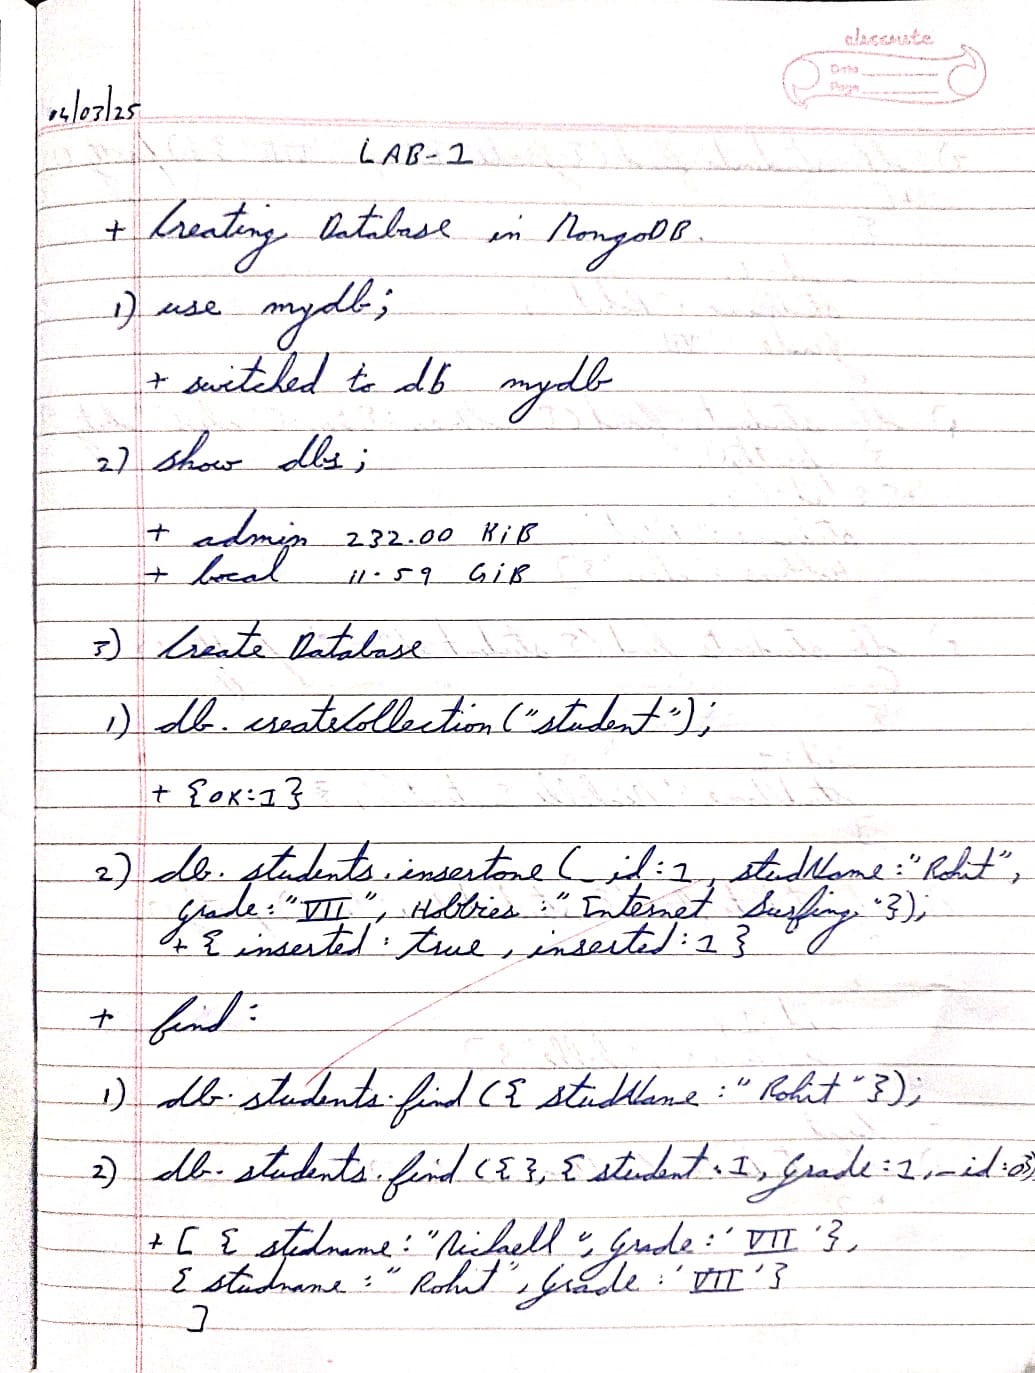 classmate
Date
Page
04/03/25
LAB-1
+ Creating Database in MongoDB.
1) use mydb;
+ switched to db mydb
2) show dbs;
+ admin 232.00 KiB
+ local 11.59 GiB
3) Create Database
1) db.createCollection("student");
+ {OK:1}
2) db.students.insertone(_id:1, studName:"Rohit",
grade:"VII", Hobbies:"Internet Surfing"});
+ { inserted: true, inserted: 1 }
+ find:
1) db.students.find({ studName:"Rohit"});
2) db.students.find({}, { student:1, Grade:1, _id:0})
+ [ { studname:"Michaell", Grade:'VII'},
{ studname:"Rohit", Grade:'VII'}
]